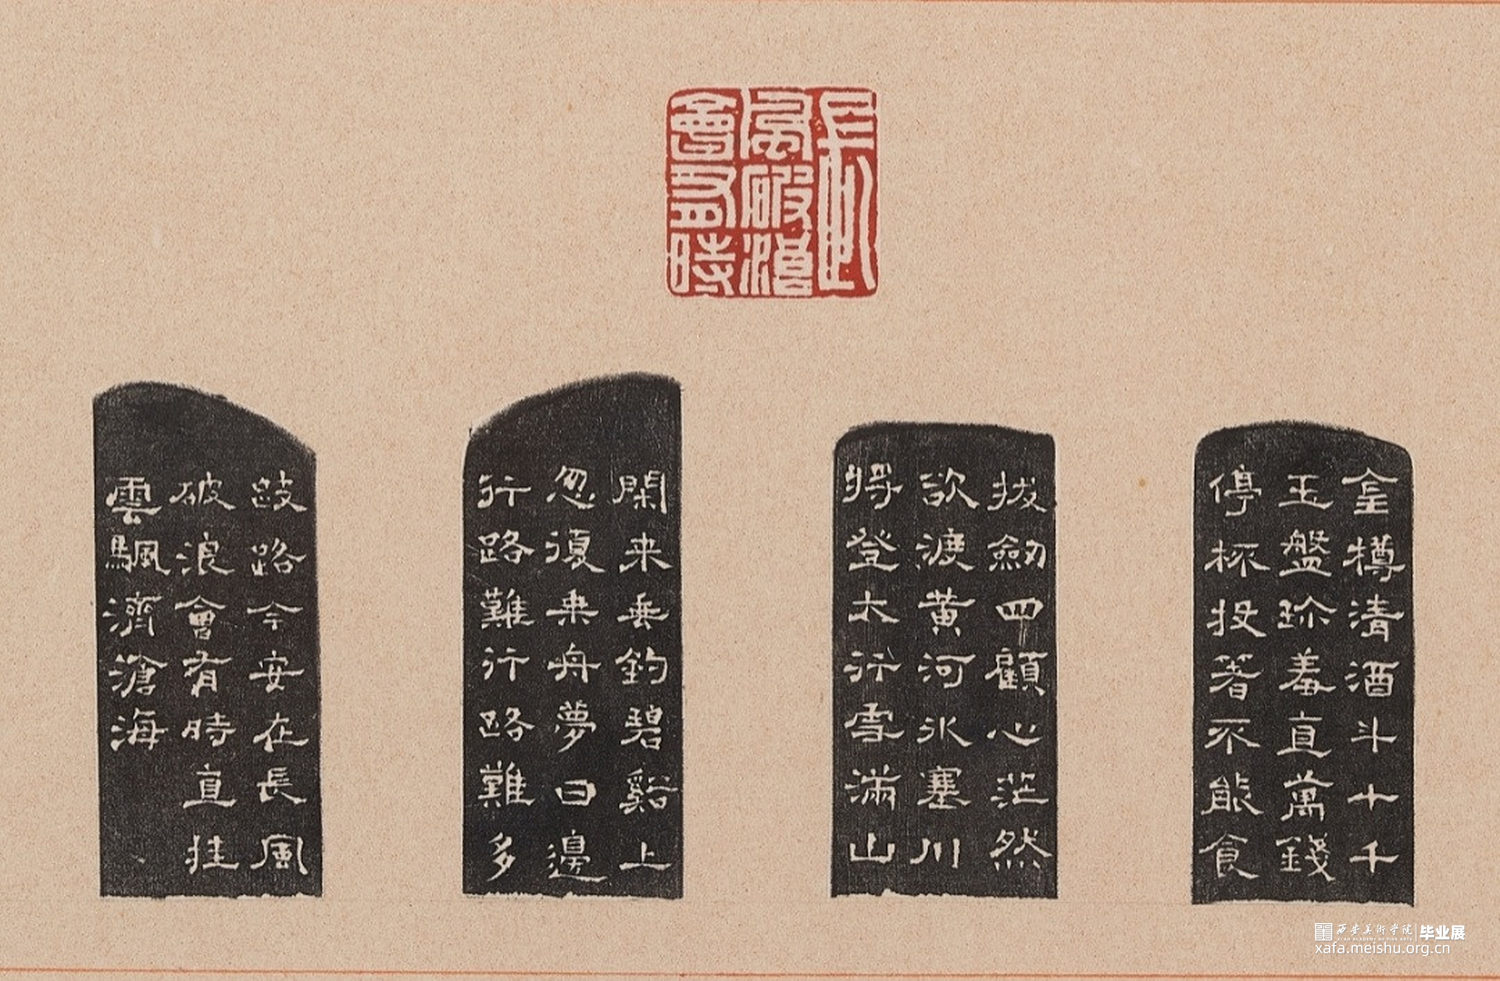 長
風破浪
會有時
金樽清酒斗十千
玉盤珎羞直萬錢
停杯投箸不能食
拔劒四顧心茫然
欲渡黃河冰塞川
將登太行雪滿山
閑来垂釣碧谿上
忽復乗舟夢日邊
行路難行路難多
歧路今安在長風
破浪會有時直挂
雲颿濟滄海
西安美術學院 毕业展
xafa.meishu.org.cn